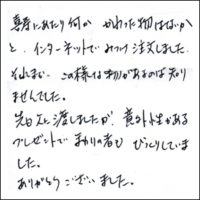 喜寿にあたり何か かわった物はないか
と、インターネットでみつけ注文しました。
それまで この様な物があるのは知り
ませんでした。
先日父に渡しましたが、意外性がある
プレゼントでまわりの者も びっくりしていま
した。
ありがとうございました。